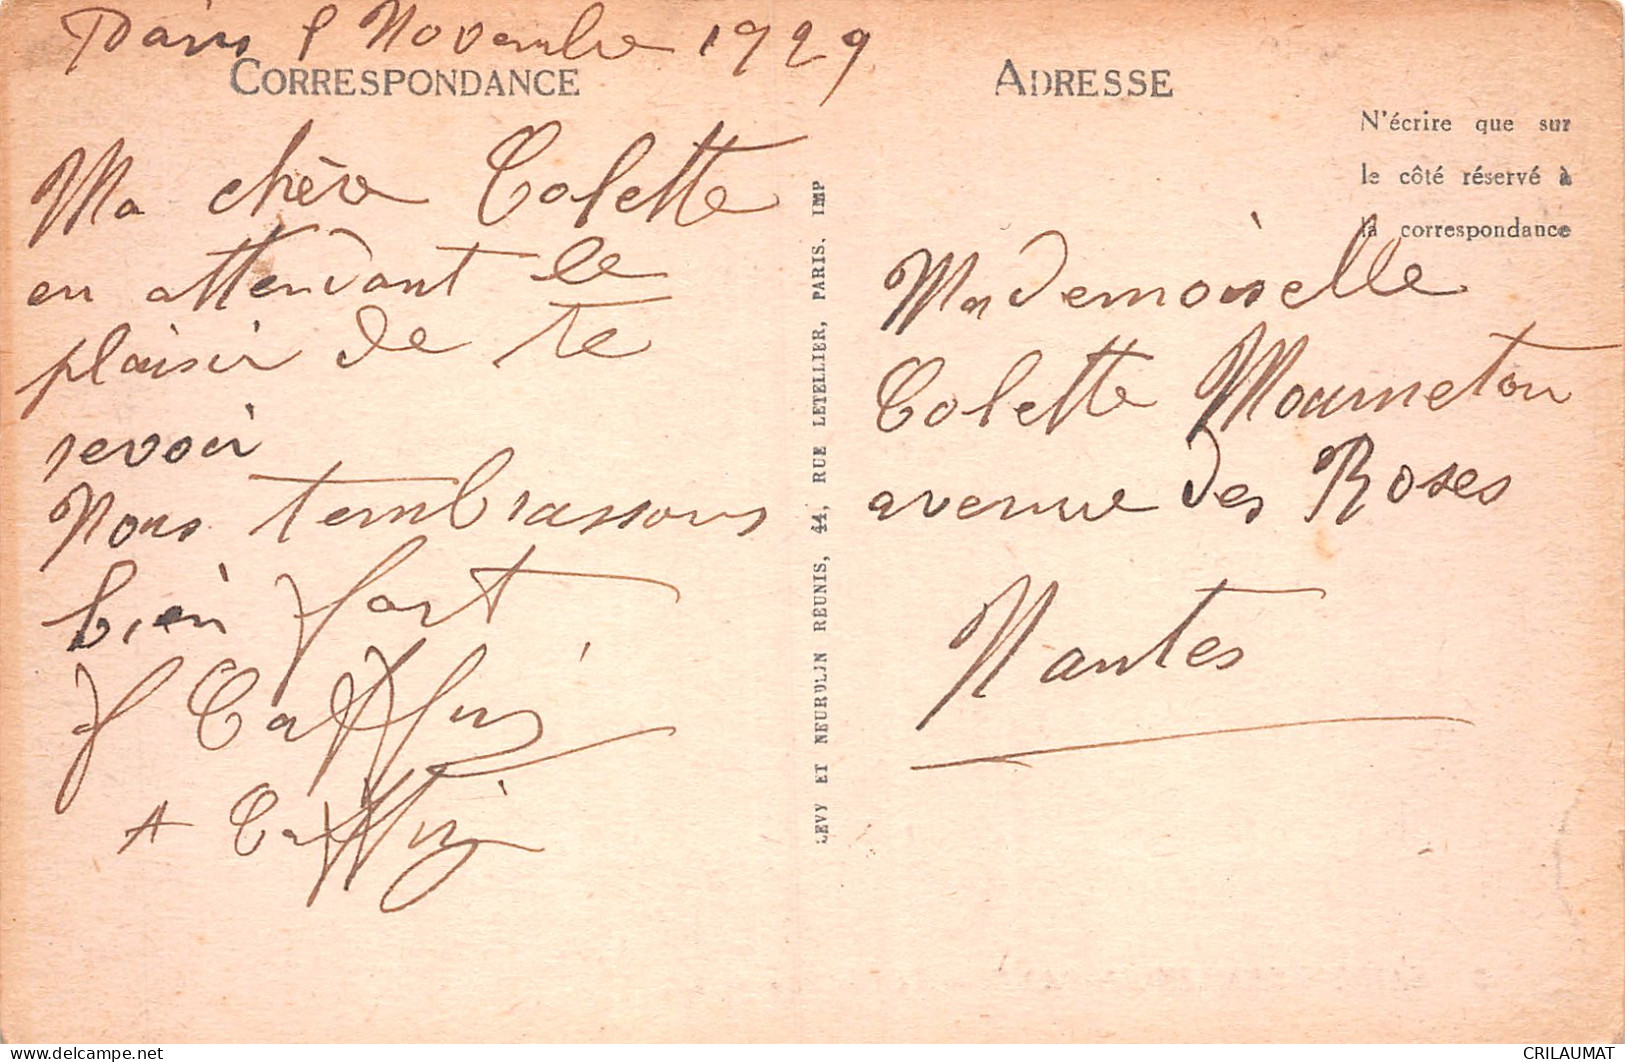 Paris 8 Novembre 1929
CORRESPONDANCE
Ma chère Colette
en attendant le
plaisir de te
revoir
Nous t'embrassons
bien fort
f Caffin
A Caffin
LEVY ET NEURDEIN REUNIS, 44, RUE LETELLIER, PARIS. IMP
ADRESSE
N'écrire que sur
le côté réservé à
la correspondance
Mademoiselle
Colette Mourneton
avenue des Roses
Nantes
CRILAUMAT